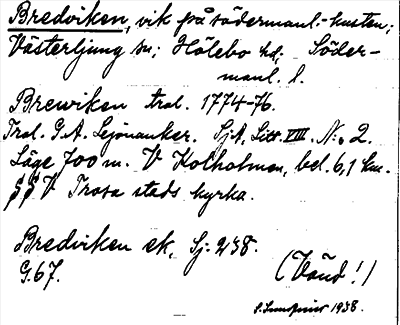 Bredviken, vik på södermanl.-kusten;
Västerljung sn; Hölebo hd, Söder-
manl. l.
Brewiken tral. 1774-76.
Tral. G.A. Lejonanker. SjA, Litt. VIII. N:o 2.
Läge 700 m. V Kolholmen, bel. 6,1 km.
V Trosa stads kyrka.
Bredviken ek. Sj: 238.
G.67.
(Vänd!)
1938.